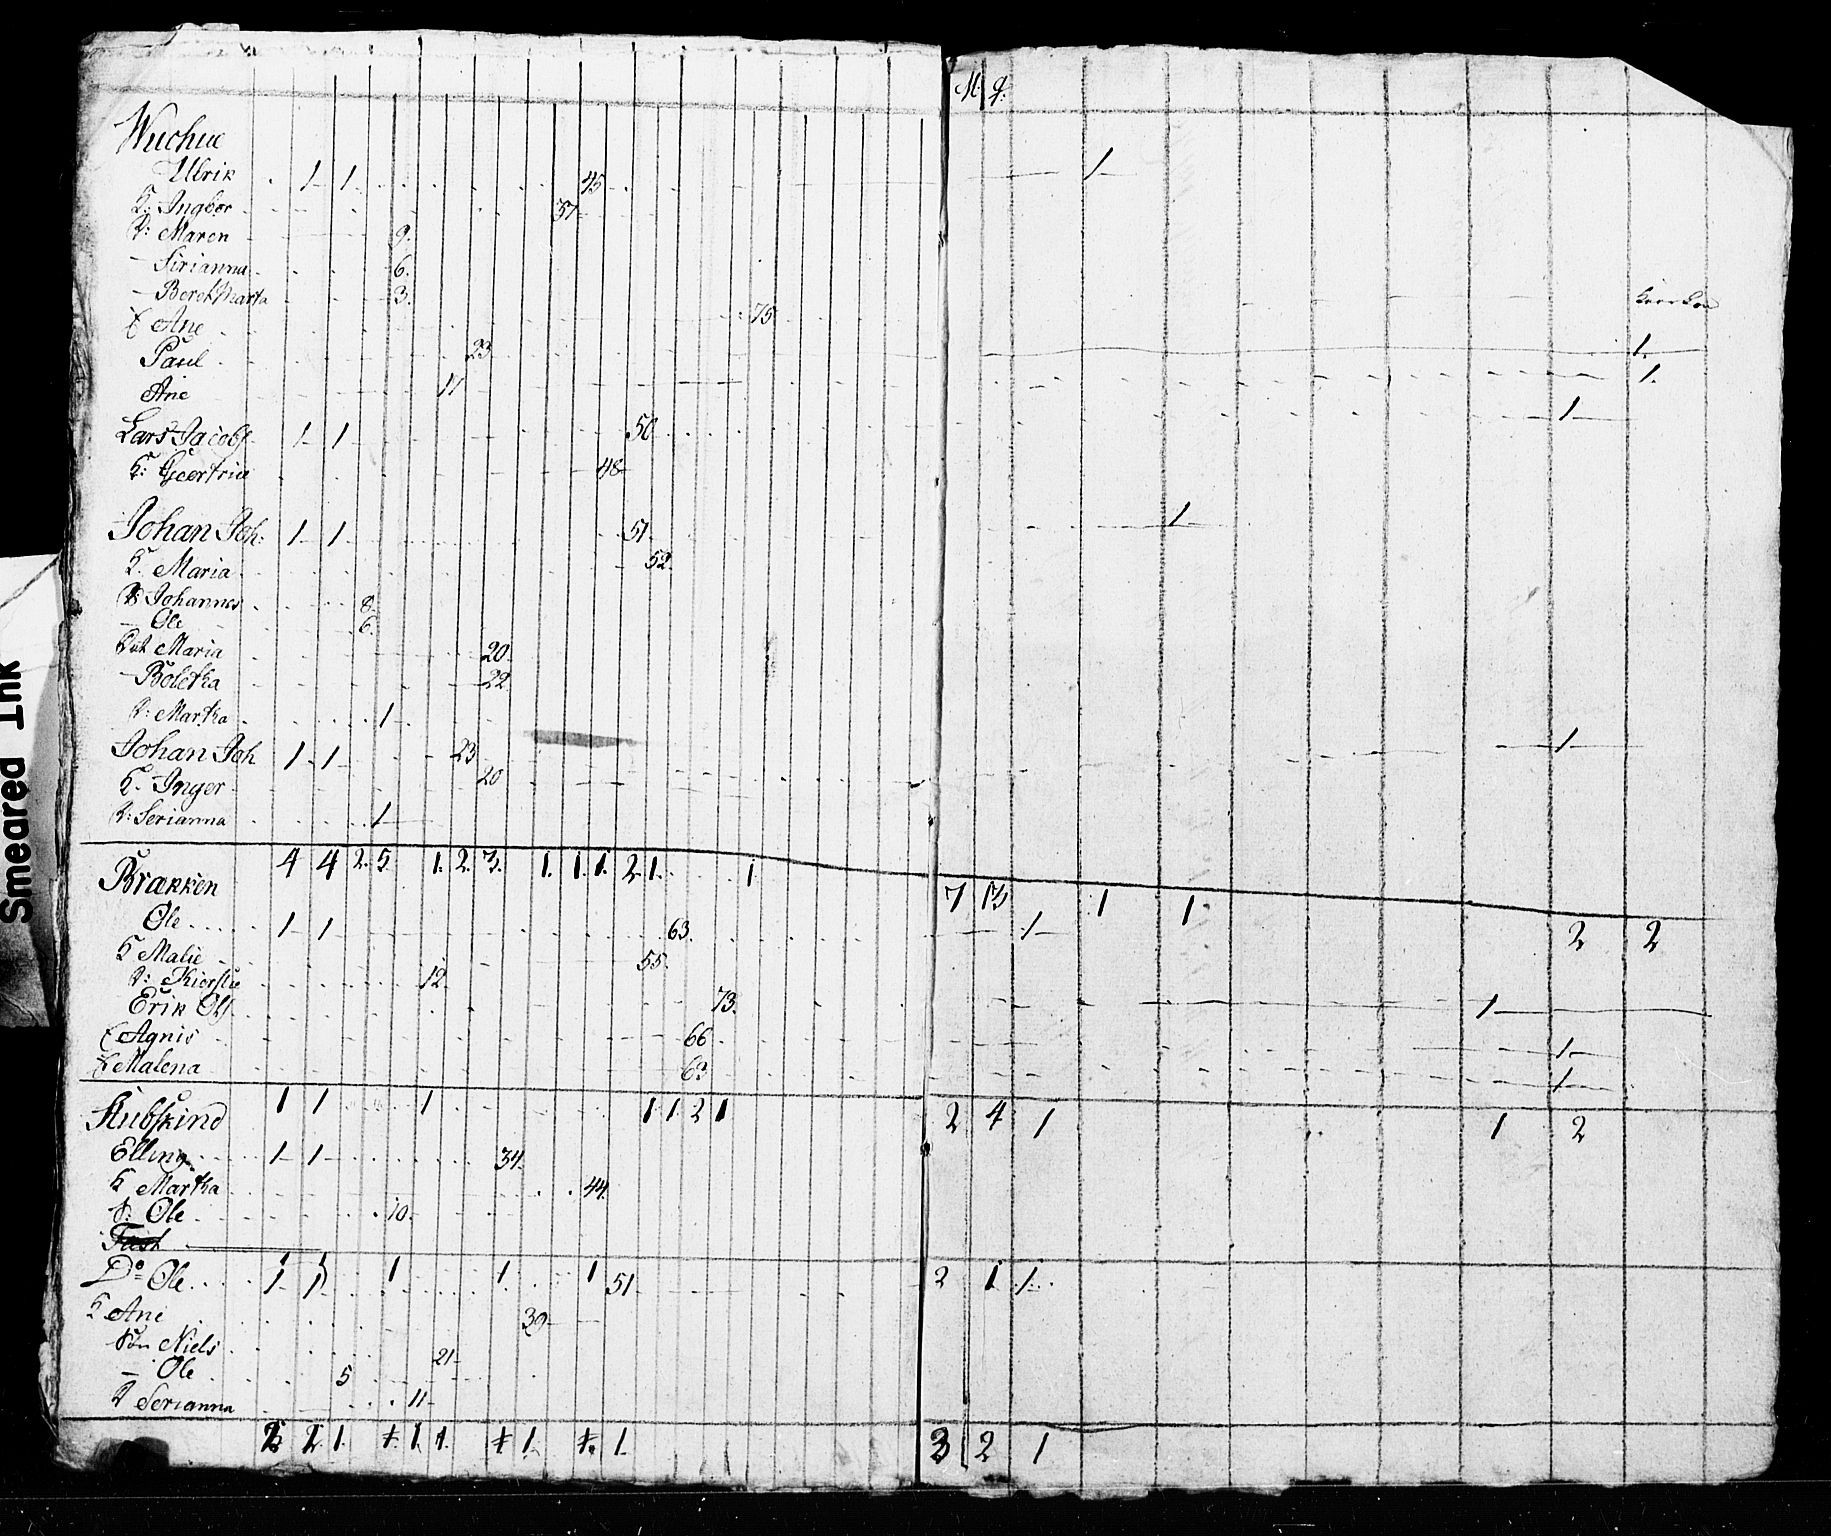 M. q.
Wuchue
Ulrik 1 1 45 1
K: Ingbor 37
D: Maren 9.
— Sirianna 6.
— Beret Marta 3.
Ane 75
Paul 23 1.
Ane 11 1.
Lars Jacobs 1 1 50 1
K: Geertrue 48
Johan Joh: 1 1 51 1
K. Maria 52
Johannes 8
— Ole 6
Dat Maria 20
— Boletha 22
D: Martha 1
Johan Joh 1 1 23 1
K. Inger 20
D: Serianna 1
4 4 2. 5. 1. 2. 3. 1. 1. 1. 2. 1. 1 7 13 1 1 2 2
Brækken
Ole 1 1 63. 1
K Malie 55.
D: Kierstie 12
Erik Ols 73. 1
Agnis 66 1
Malena 63 1
1 1 1 1 1 2 1 2 4 1 1 2
Stubskind
Elling 1 1 34
K Martha 44
S: Ole 10.
1 1 1 1 1 2 1 1
Do Ole 1 1 51
K Ane 39
Søn Niels 21
— Ole 5
D Serianna 11
2 2 1. 1. 1 1. 1 1. 1. 1 3 2 1
Smeared Ink